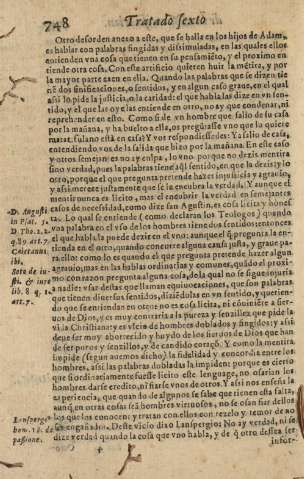 748 Tratado sexto
Otro desorden anexo a este, que se halla en los hijos de Adam,
es hablar con palabras fingidas y dissimuladas, en las quales ellos
entienden vna cosa que tienen en su pensamiēto, y el proximo en
tiende otra cosa. Con este artificio quieren huir la mētira, y por
la mayor parte caen en ella. Quando las palabras que se dizen tie
nē dos sinificaciones, o sentidos, y en algun caso graue, en el qual
assi lo pide la justicia, o la caridad: el que habla las dize en vn sen-
tido, y el que las oye las entiende en otro, no ay que condenar, ni
reprehender en esto. Como si de vn hombre que salio de su casa
por la mañana, y ha buelto a ella, os preguasse vno que le quiere
matar, fulano està en casa? Y vos respondiessedes: Ya salio de casa,
entendiendo vos de la salida que hizo por la mañana. En este caso
y otros semejantes no ay culpa, lo vno porque no dezis mentira
sino verdad, pues las palabras tienē aql sentido, en que la dezis: y lo
otro, porque el que pregunta pretende hazer injusticia y agrauio,
y assi merece justamente que se le encubra la verdad. Y aunque el
mentir nunca es licito, mas el encubrir la verdad en semejantes
casos de necessidad, como dize san Agustin, es cosa licita y honest
ta. Lo qual se entiende (como declaran los Teologos) quando
vna palabra en el vso de los hombres tiene dos sentidos: entonces
el que habla la puede dezir en el vno: aunque el q̄ pregunta la en-
tienda en el otro, quando concurre alguna causa justa, y graue pa-
ra ello: como lo es quando el que pregunta pretende hazer algun
agrauio, mas en las hablas ordinarias y comunes, quādo el proxi-
mo con razon pregunta alguna cosa, de la qual no se sigue injuria
a nadie: vsar destas que llaman equiuocaciones, que son palabras
que tienen diuersos sentidos, diziēdolas en vn sentido, y querien-
do que se entiendan en otro: no es cosa licita, ni conuiniente a sier-
uos de Dios, y es muy contraria a la pureza y senzillez que pide la
vida Christiana: y es vicio de hombres doblados y fingidos: y assi
deue ser muy aborrecido y huydo de los sieruos de Dios que han
de ser puros y senzillos, y de candido coraçō. Y como la mentira
impide (segun auemos dicho) la fidelidad y concordia entre los
hombres, assi las palabras dobladas la impiden: porque es cierto
que si ordinariamente fuesse licito este lenguage, no osarian los
hombres darse credito, ni fiarse vnos de otros. Y assi nos enseña la
experiencia, que quando de algunos se sabe que tienen esta falta,
aunq̄ en otras cosas seā hombres virtuosos, no se osan fiar dellos
los que los conocen: y tratan con ellos con rezelo y temor de no
ser engañados. Deste vicio dixo Lanspergio: No ay verdad, ni se
dize verdad quando la cosa que vno habla, y de q̄ otro dessea ser
infor-
D. Augusti.
in Psal. 5.
D. Tho. 2.2.
q. 89 art. 7.
Caietanus
ibi.
Soto de iu-
sti. & iure
lib. 8 q. 1.
art. 7.
Lansperg.
hom. 18. de
passione.